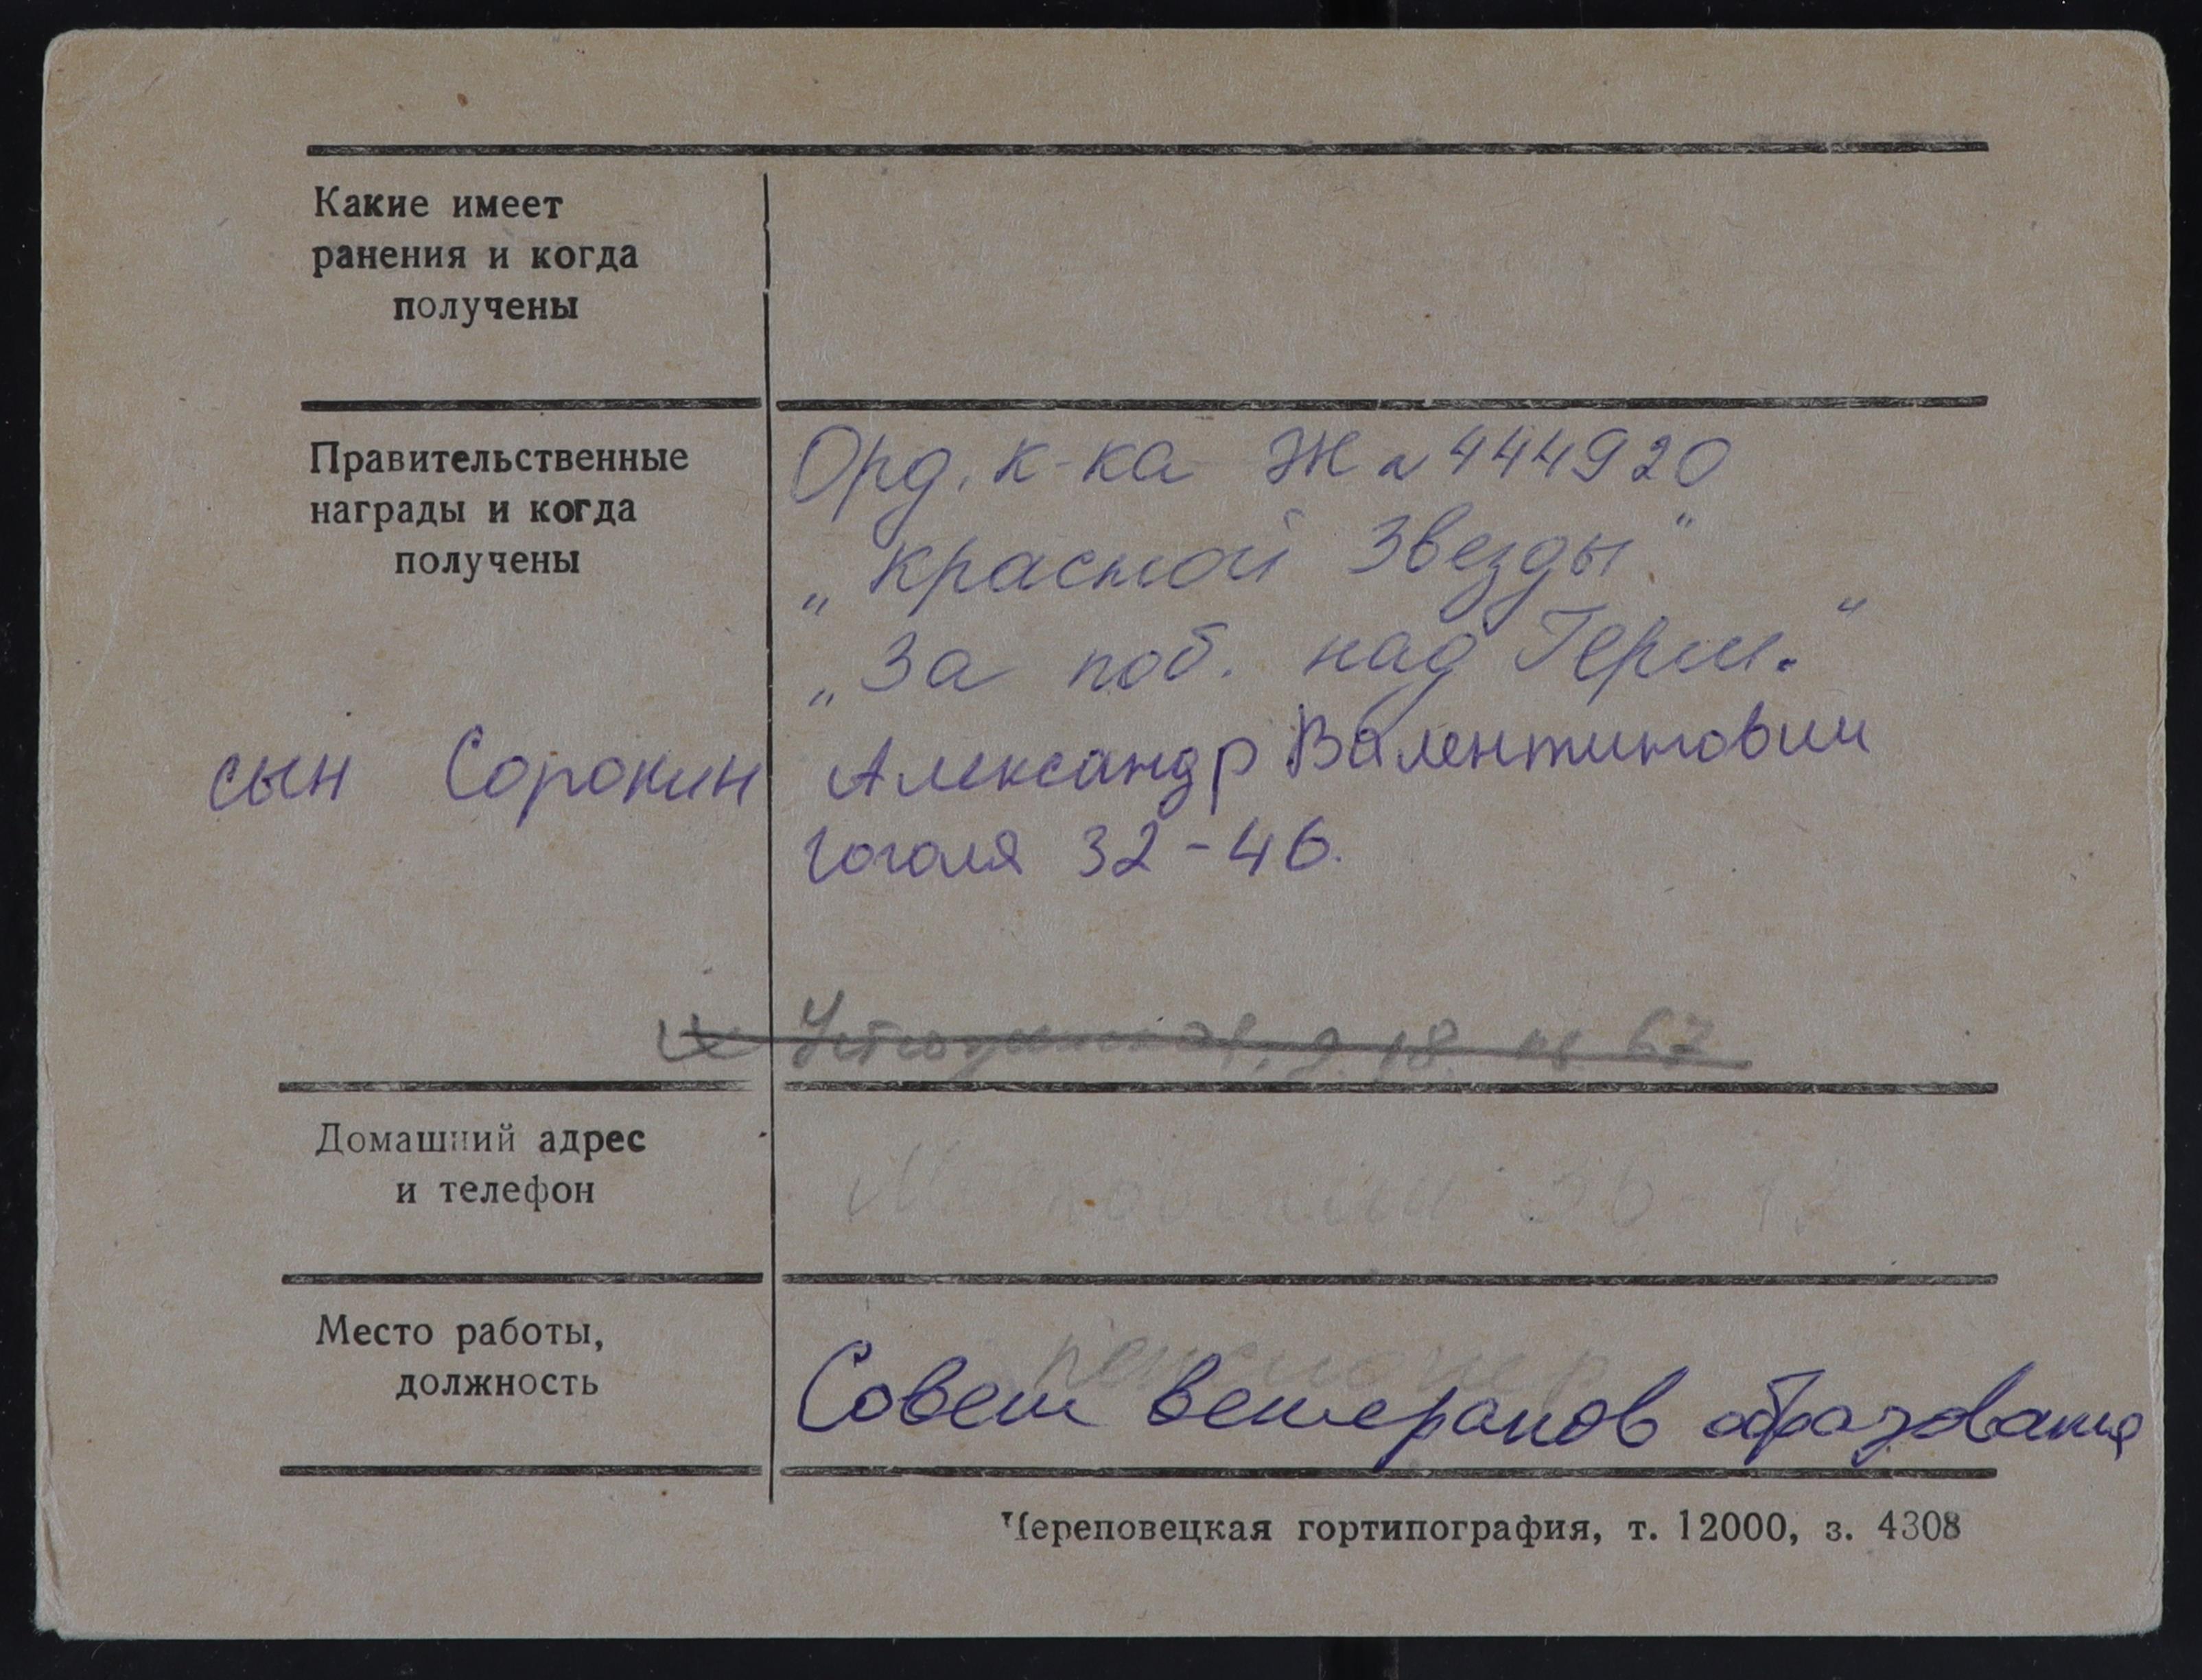 Какие имеет
ранения и когда
получены
Правительственные
награды и когда
получены
Орд. к-ка Ж № 444920
„Красной Звезды"
„За поб. над Герм."
сын Сорокин Александр Валентинович
Гоголя 32-46.
д. 18 67
Домашний адрес
и телефон
Место работы,
должность
пенсионер
Совет ветеранов образования
Череповецкая гортипография, т. 12000, з. 4308